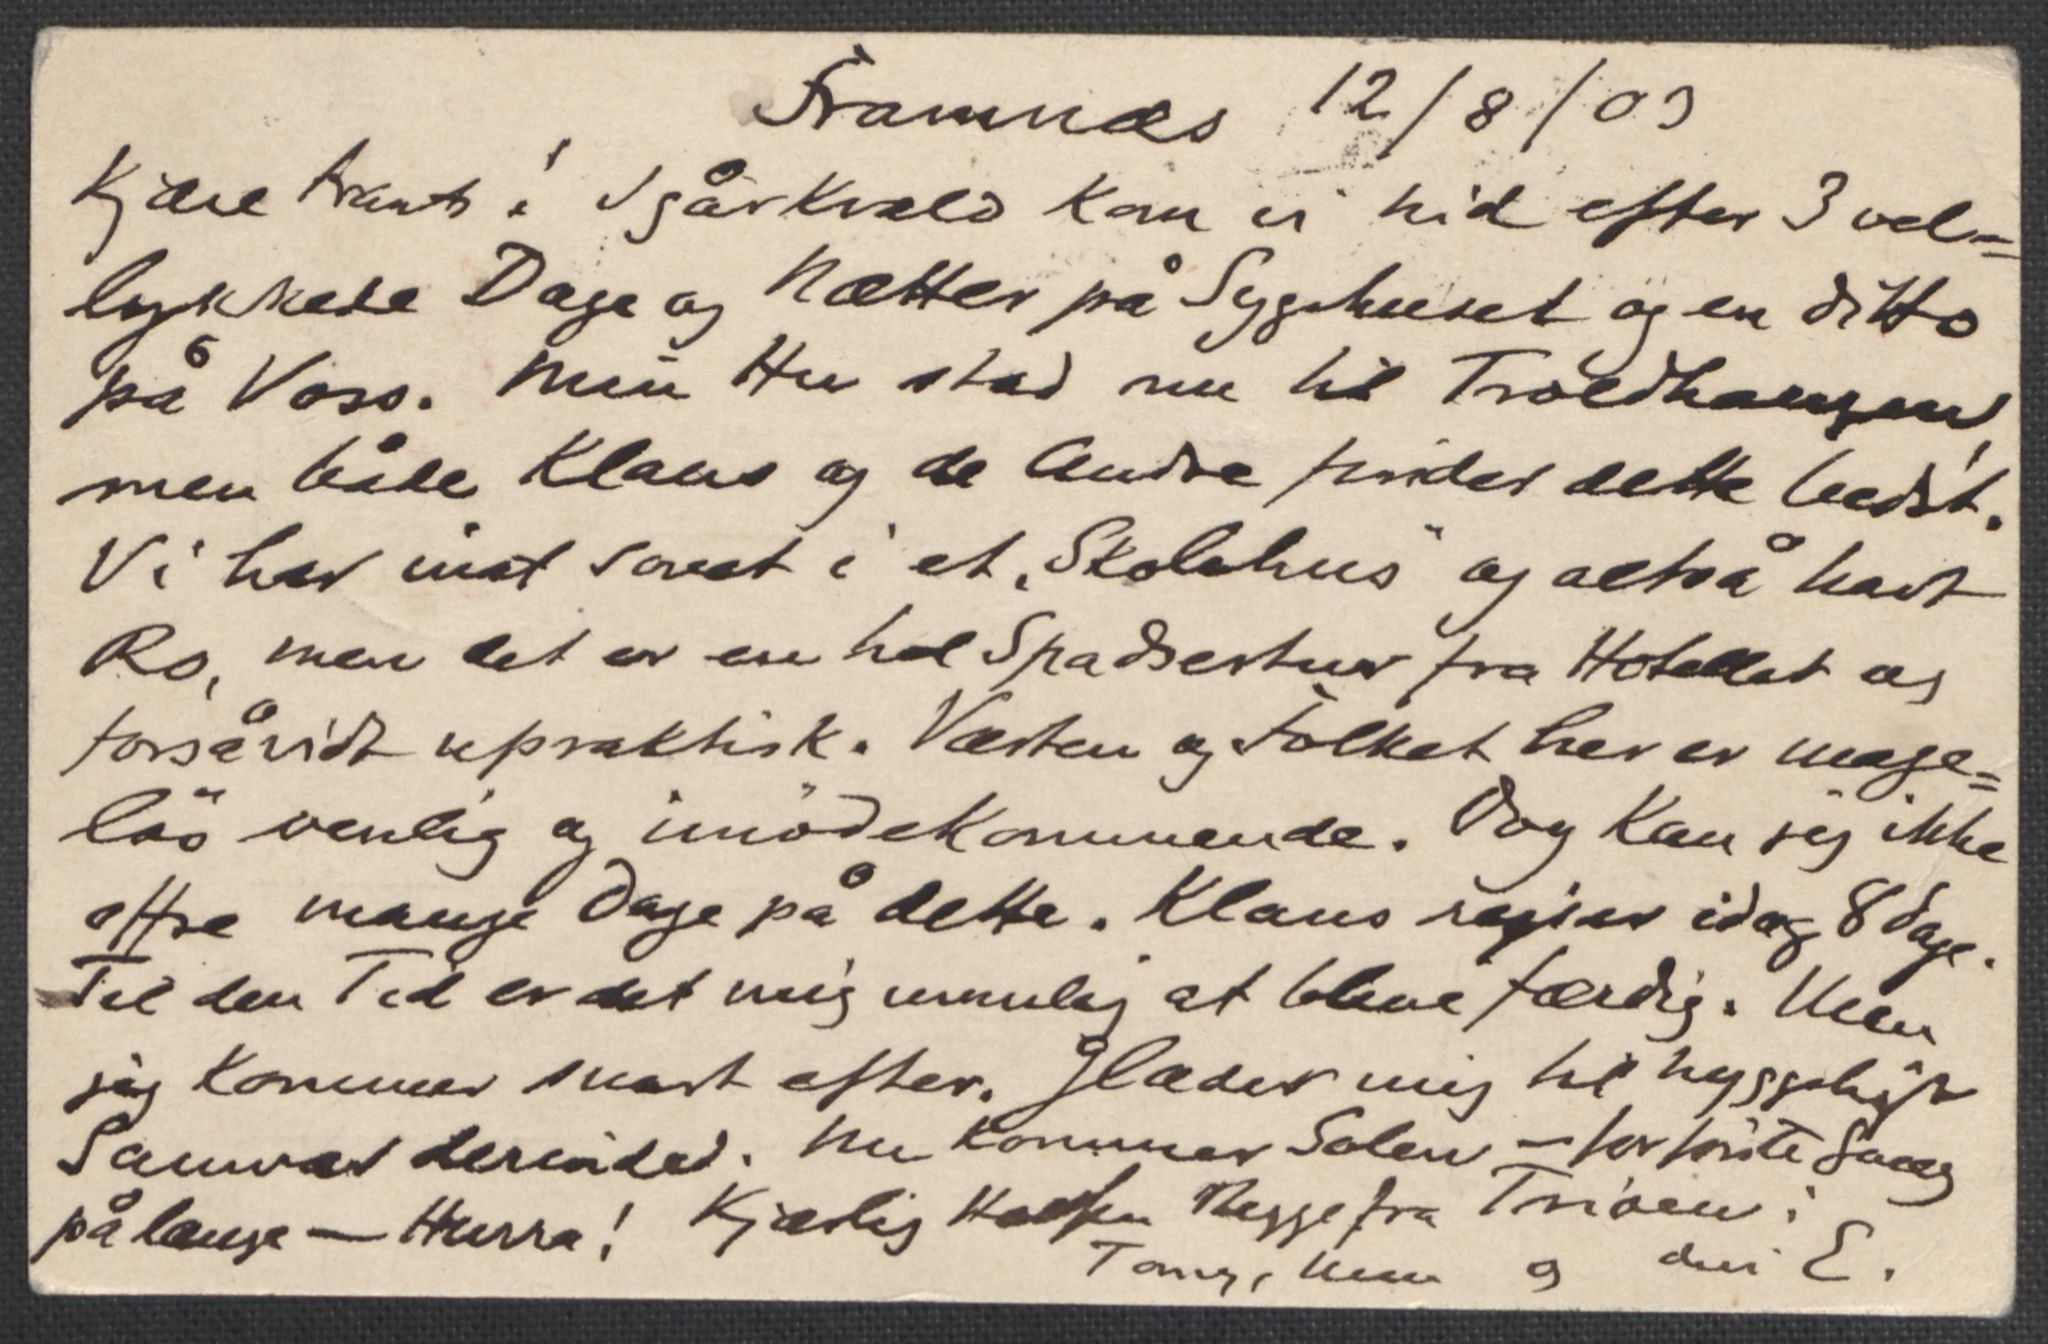 Framnæs 12/8/03
Kjære Frants! Igårkvæld kom vi hid efter 3 vel=
lykkede Dage og Nætter på Sygehuset og en ditto
på Voss. Min Hu stod nu til Troldhaugen,
men både Klaus og de Andre finder dette bedst.
Vi har inat sovet i et „Skolehus" og altså havt
Ro, men det er en hel Spadsertur fra Hotellet og
forsåvidt upraktisk. Værten og Folket her er mage=
lös venlig og imödekommende. Dog kan jeg ikke
ofre mange Dage på dette. Klaus rejser idag 8 dage.
Til den Tid er det mig umulig at blive færdig. Men
jeg kommer snart efter. Glæder mig til hyggeligt
Samvær derinde. Nu kommer Solen – for förste Gang
på længe – Hurra! Kjærlig Hilsen Begge fra Trioen:
Tony, Mm og din E.